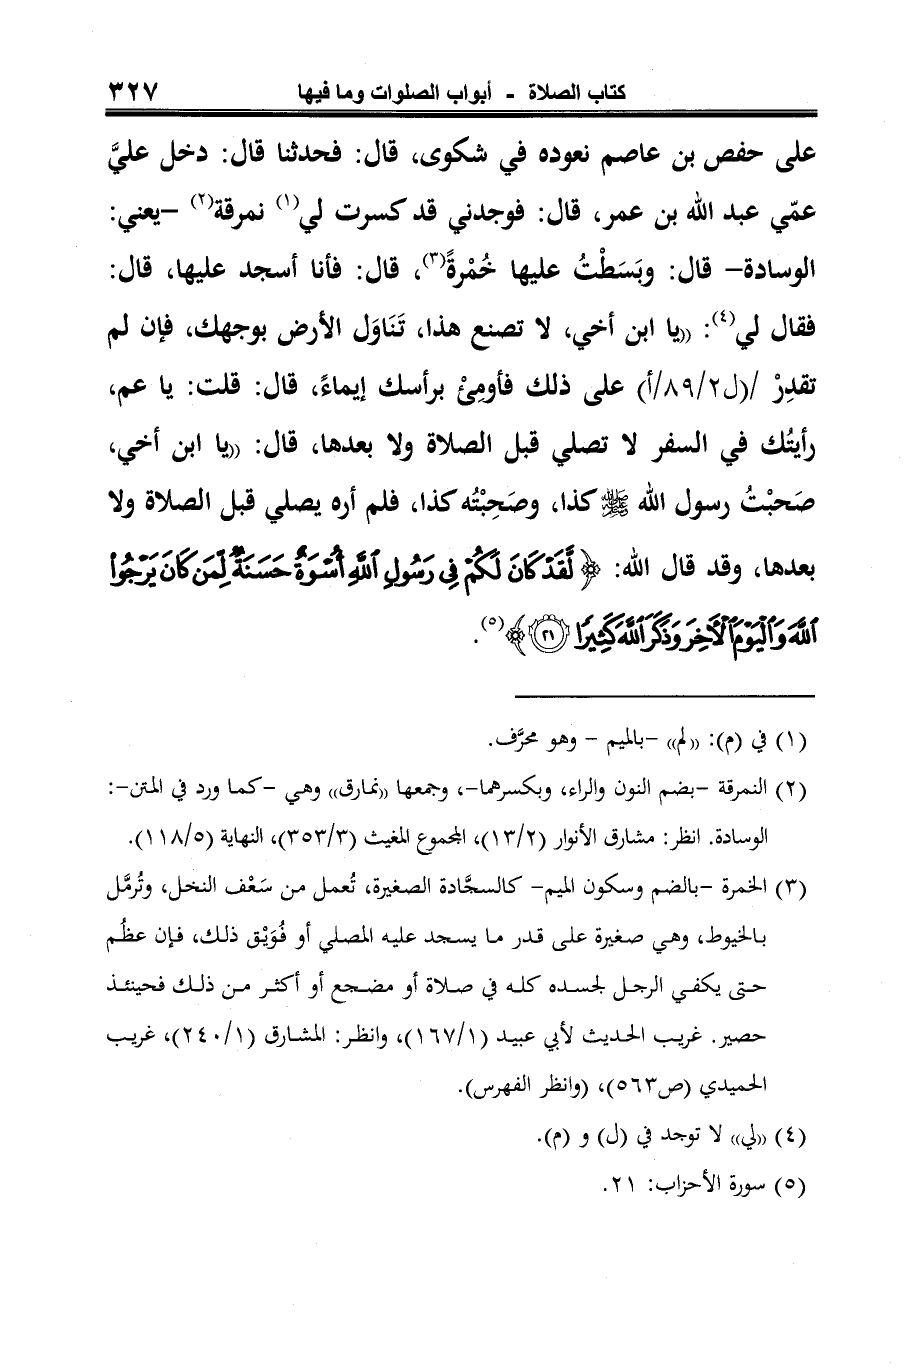 كتاب الصلاة - أبواب الصلوات وما فيها ٣٢٧
على حفص بن عاصم نعوده في شكوى، قال: فحدثنا قال: دخل عليَّ
عمّي عبد الله بن عمر، قال: فوجدني قد كسرت لي(١) نمرقة(٢) –يعني:
الوسادة– قال: وبَسَطْتُ عليها خُمْرةً(٣)، قال: فأنا أسجد عليها، قال:
فقال لي(٤): «يا ابن أخي، لا تصنع هذا، تَنَاوَل الأرض بوجهك، فإن لم
تقدِرْ /(ل٨٩/٢/أ) على ذلك فأومِئْ برأسك إيماءً، قال: قلت: يا عم،
رأيتُك في السفر لا تصلي قبل الصلاة ولا بعدها، قال: «يا ابن أخي،
صَحبْتُ رسول الله ﷺ كذا، وصَحِبْتُه كذا، فلم أره يصلي قبل الصلاة ولا
بعدها، وقد قال الله: ﴿ لَّقَدْ كَانَ لَكُمْ فِي رَسُولِ ٱللَّهِ أُسْوَةٌ حَسَنَةٌ لِّمَن كَانَ يَرْجُوا۟
ٱللَّهَ وَٱلْيَوْمَ ٱلْـَٔاخِرَ وَذَكَرَ ٱللَّهَ كَثِيرًا ٢١﴾(٥).
(١) في (م): «لم» –بالميم – وهو محرَّف.
(٢) النمرقة –بضم النون والراء، وبكسرهما–، وجمعها «نمارق» وهي –كما ورد في المتن–:
الوسادة. انظر: مشارق الأنوار (١٣/٢)، المجموع المغيث (٣٥٣/٣)، النهاية (١١٨/٥).
(٣) الخمرة –بالضم وسكون الميم– كالسجَّادة الصغيرة، تُعمل من سَعْف النخل، وتُرمَّل
بالخيوط، وهي صغيرة على قدر ما يسجد عليه المصلي أو فُوَيْق ذلك، فإن عظُم
حتى يكفي الرجل لجسده كله في صلاة أو مضجع أو أكثر من ذلك فحينئذ
حصير. غريب الحديث لأبي عبيد (١٦٧/١)، وانظر: المشارق (٢٤٠/١)، غريب
الحميدي (ص٥٦٣)، (وانظر الفهرس).
(٤) «لي» لا توجد في (ل) و (م).
(٥) سورة الأحزاب: ٢١.